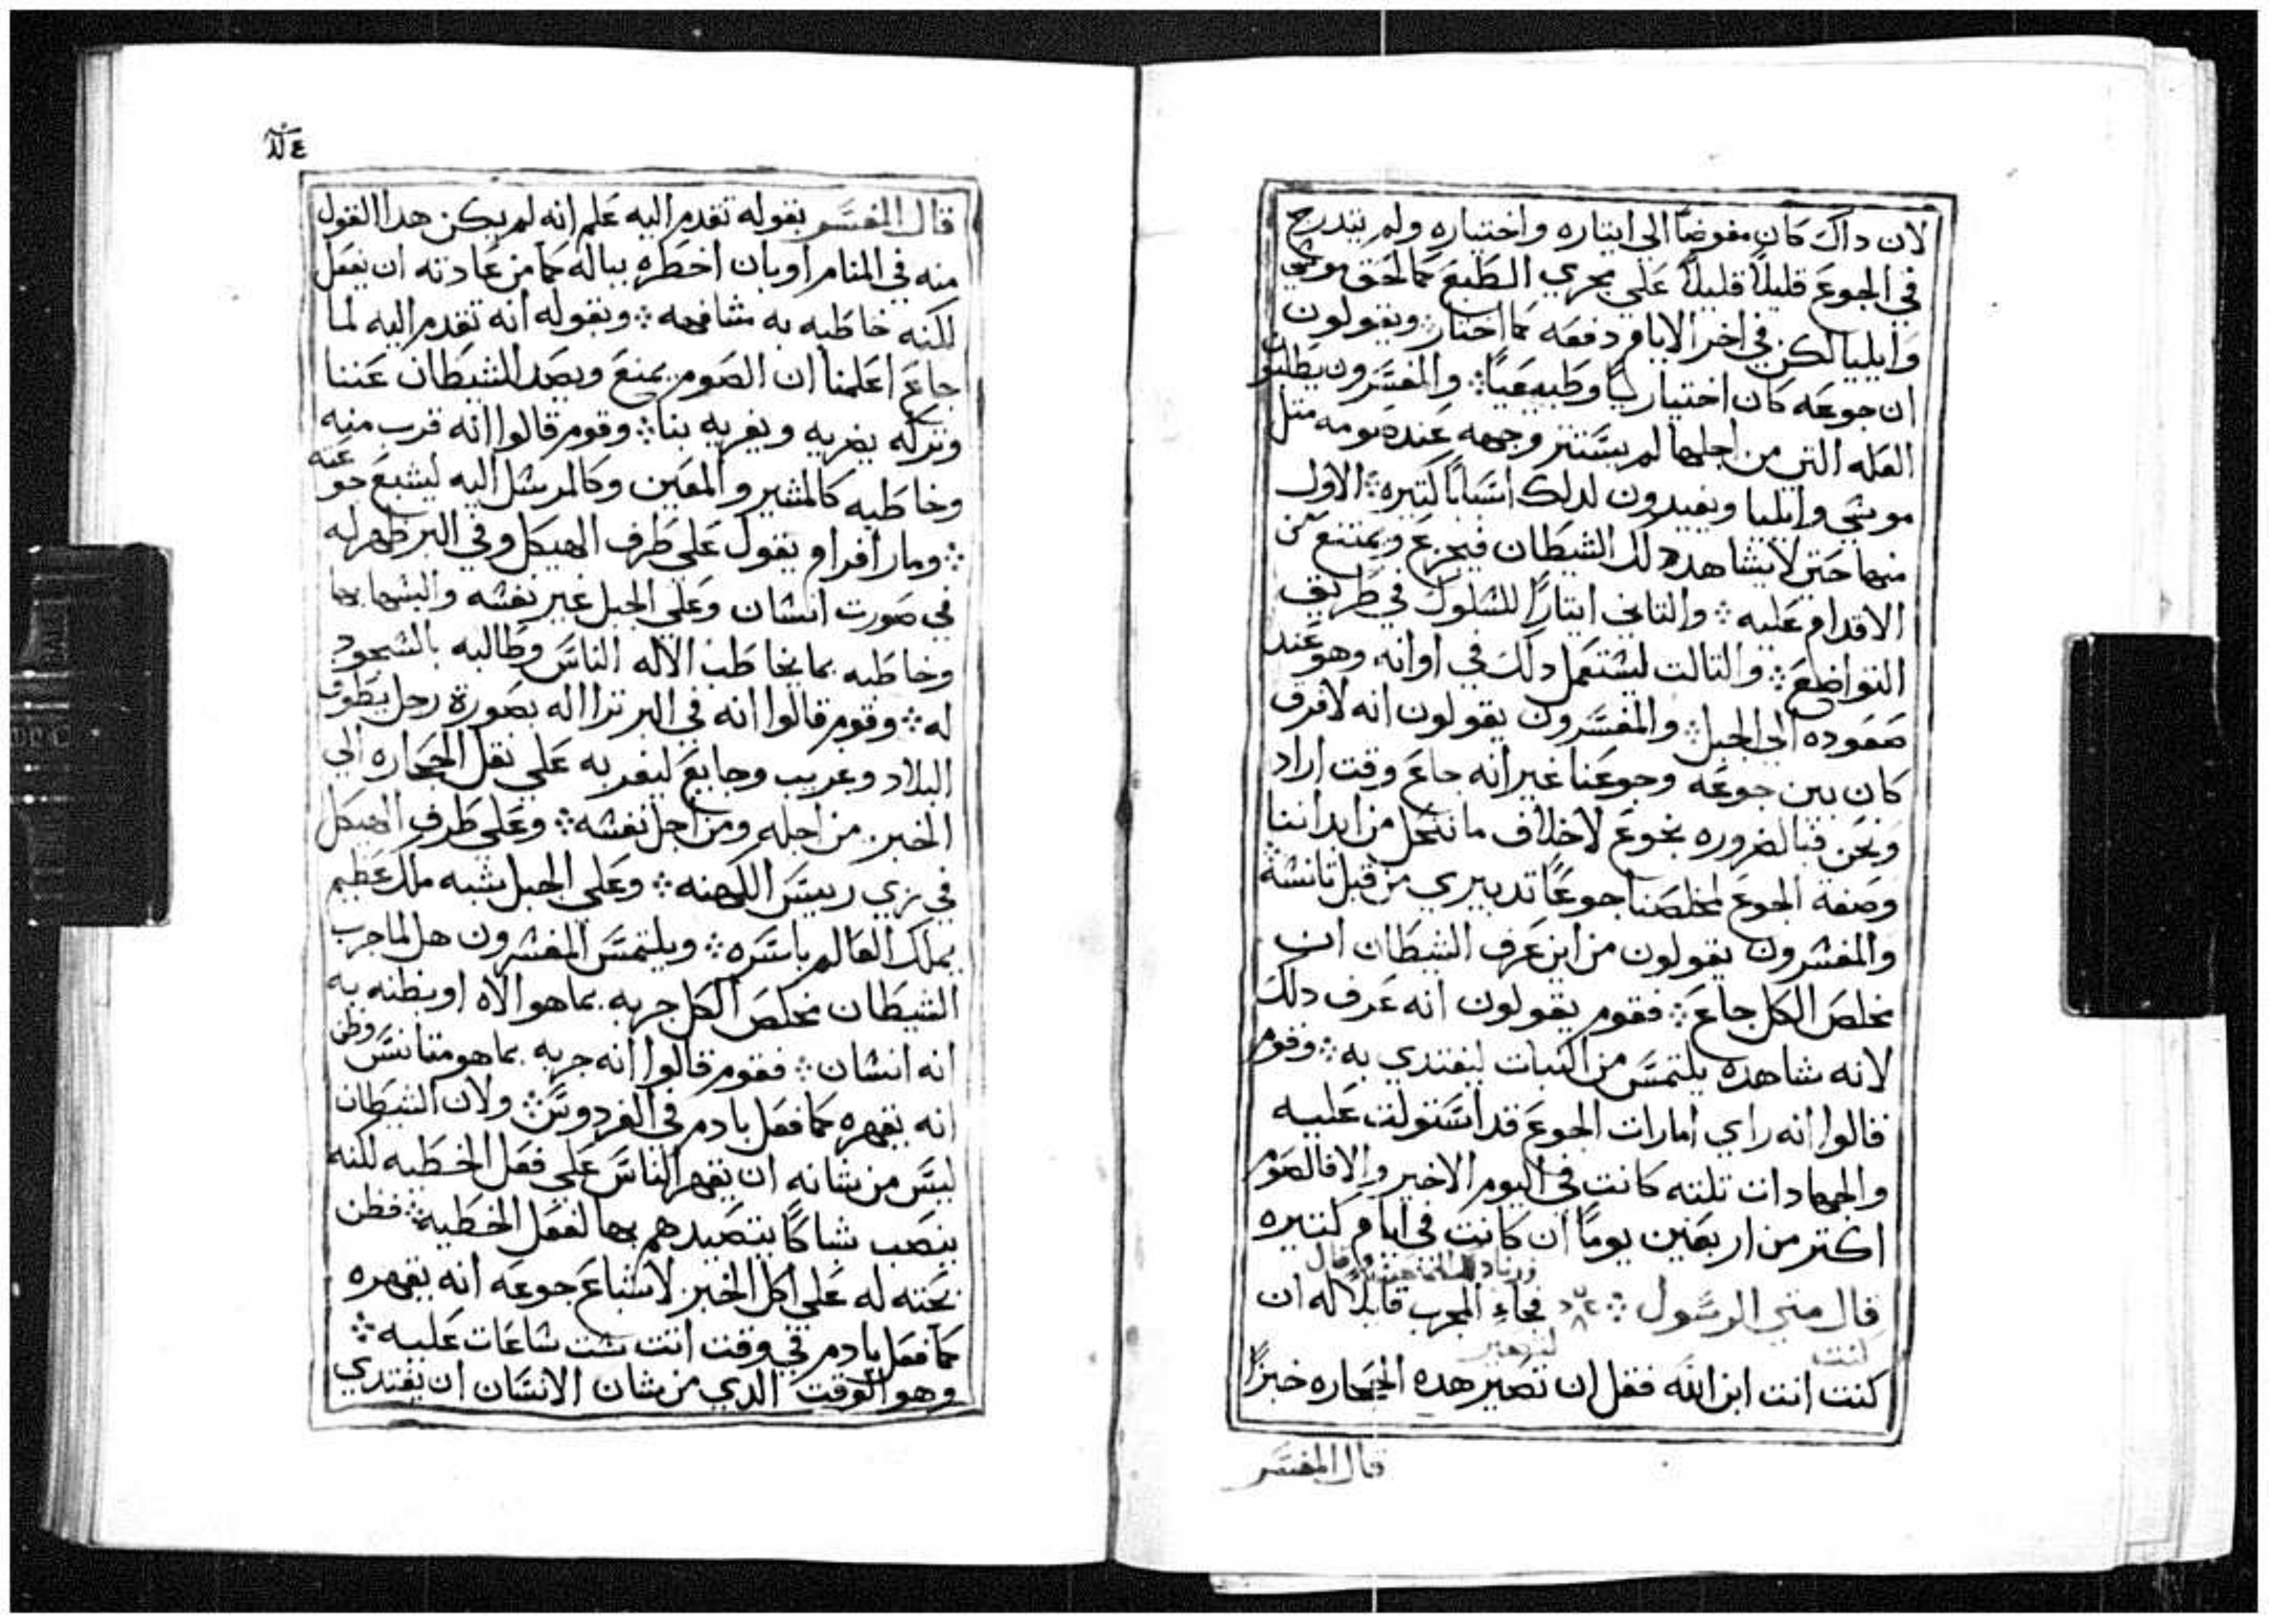 لان داك كان مفوضًا الي ايتاره واختياره ولم يتدرج
في الجوع قليلاً قليلاً علي مجري الطبع كما لحق موشي
وايليا لكن في اخر الايام دفعه كما اختار ܀ ويقولون
ان جوعه كان اختياريًا وطبيعيًا ܀ والمفسرون يطلبون
العله التي من اجلها لم يستتر وجهه عند صومه متل
موشي وايليا ويفيدون لدلك اسبابًا كتيره ܀ الاول
منها حتي لا يشاهد دلك الشيطان فيجزع ويمتنع من
الاقدام عليه ܀ والتاني ايتارًا للسلوك في طريق
التواضع ܀ والتالت ليستعمل دلك في اوانه وهو عند
صعوده الي الجبل ܀ والمفسرون يقولون انه لا فرق
كان بين جوعه وجوعنا غير انه جاع وقت اراد
ونحن فبالضروره نجوع لاخلاف ما نتحل من ابداننا
وصفة الجوع لمخلصنا جوعًا تدبيري من قبل تانسه
والمفسرون يقولون من اين عرف الشيطان ان
مخلص الكل جاع ܀ فقوم يقولون انه عرف دلك
لانه شاهده يلتمس من النبات ليغتدي به ܀ وقوم
قالوا انه راي امارات الجوع قد استولت عليه
والجهادات تلتته كانت في اليوم الاخير والا فالصوم
اكتر من اربعين يومًا ان كانت في ايام كتيره
قال متي الرسول ܀ فجاء المجرب قايلاً له ان
كنت
كنت انت ابن الله فقل ان تصير هده الحجاره خبزًا
قال المفسر
قال المفسر بقوله تقدم اليه علم انه لم يكن هدا القول
منه في المنام او بان اخطره بباله كما من عادته ان يفعل
لكنه خاطبه به مشافهه ܀ وبقوله انه تقدم اليه لما
جاع اعلمنا ان الصوم يمنع ويصد الشيطان عننا
وتركه يضريه ويغريه بنا ܀ وقوم قالوا انه قرب منه
وخاطبه كالمشير والمعين وكالمرسل اليه ليشبع جوعه
܀ ومار افرام يقول علي طرف الهيكل وفي البر ظهر له
في صورت انسان وعلي الجبل غير نفسه والبسها بها
وخاطبه بما يخاطب الاله الناس وطالبه بالسجود
له ܀ وقوم قالوا انه في البر ترااله بصورة رجل يطوف
البلاد وغريب وجايع ليغر به علي نقل الحجاره الي
الخبز من اجلهم ومن اجل نفسه ܀ وعلي طرف الهيكل
في زي رييس الكهنه ܀ وعلي الجبل شبه ملك عظيم
يملك العالم باسره ܀ ويلتمس المفسرون هل لما جرب
الشيطان مخلص الكل جربه بما هو الاه او بظنه به
انه انسان ܀ فقوم قالوا انه جربه بما هو متانس وظن
انه يقهره كما فعل بادم في الفردوس ܀ ولان الشيطان
ليس من شانه ان يقهر الناس علي فعل الخطيه لكنه
ينصب شباكًا يتصيدهم بها لفعل الخطيه ܀ فظن
بحته له علي اكل الخبز لاشباع جوعه انه يقهره
كما فعل بادم في وقت اتت ست ساعات عليه ܀
وهو الوقت الدي من شان الانسان ان يغتدي